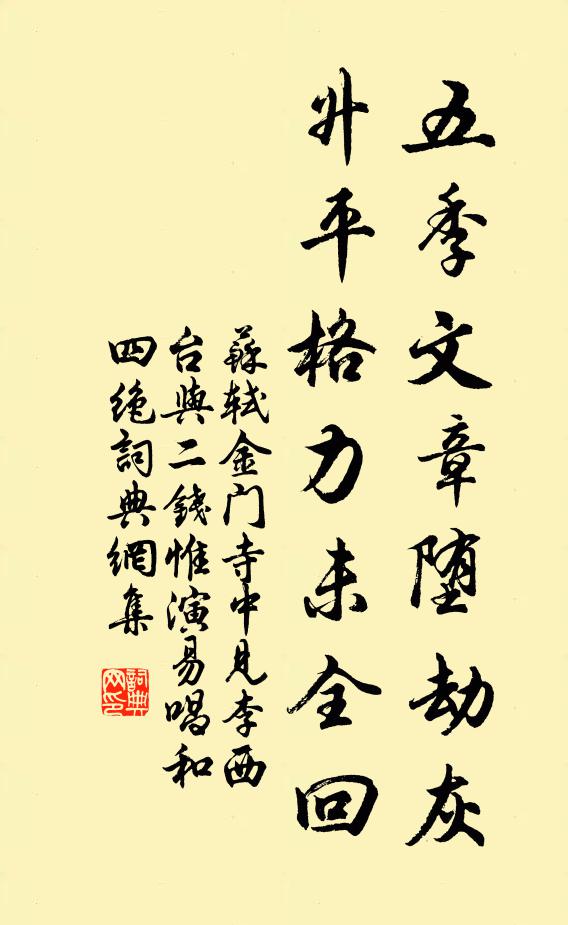 五季文章堕劫灰
升平格力未全回
蘇軾金门寺中見李西
台與二錢惟演易唱和
四絶詞典網集
詞典网印